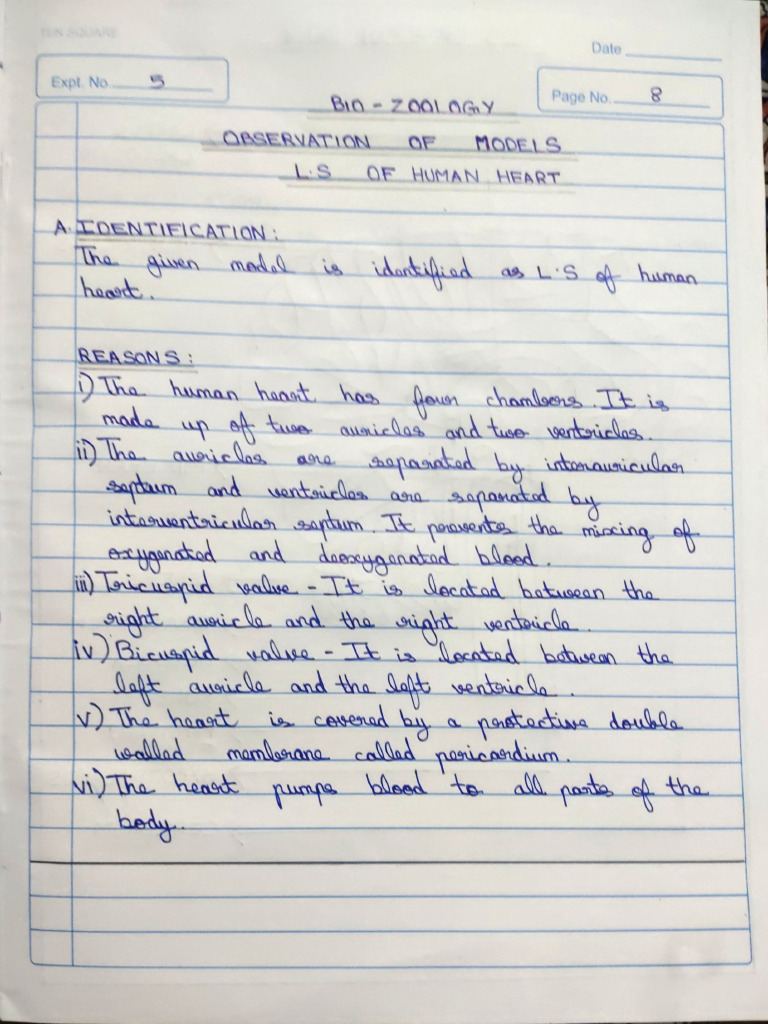 Date
Expt. No. 5
Page No. 8
BIO - ZOOLOGY
OBSERVATION OF MODELS
L.S OF HUMAN HEART
A. IDENTIFICATION:
The given model is identified as L.S of human
heart.
REASONS:
i) The human heart has four chambers. It is
made up of two auricles and two ventricles.
ii) The auricles are separated by interauricular
septum and ventricles are separated by
interventricular septum. It prevents the mixing of
oxygenated and deoxygenated blood.
iii) Tricuspid valve - It is located between the
right auricle and the right ventricle.
iv) Bicuspid valve - It is located between the
left auricle and the left ventricle.
v) The heart is covered by a protective double
walled membrane called pericardium.
vi) The heart pumps blood to all parts of the
body.